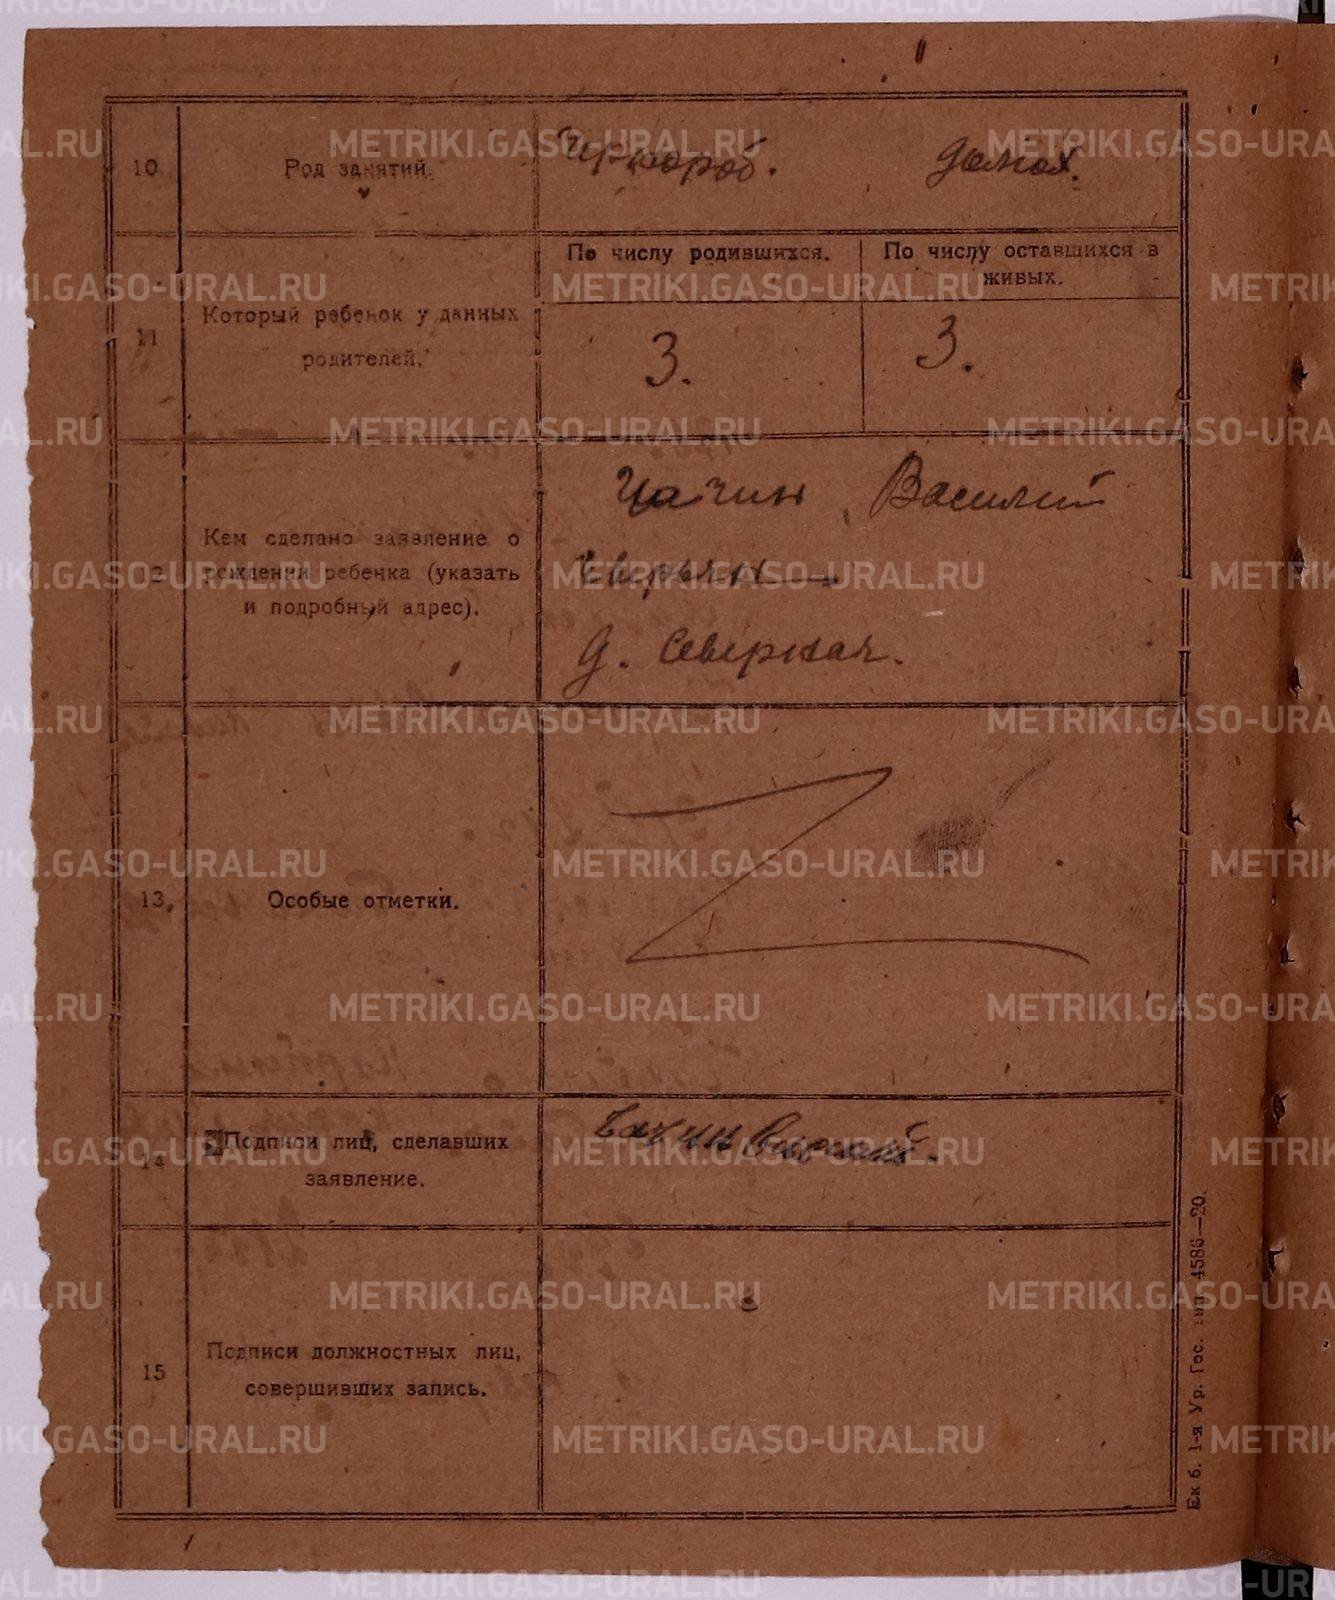 10
Род занятий.
Чернораб.
домох.
11
Который ребенок у данных
родителей.
По числу родившихся.
По числу оставшихся в
живых.
3.
3.
12
Кем сделано заявление о
рождении ребенка (указать
и подробный адрес).
Василий
д. Северная.
13.
Особые отметки.
14
Подписи лиц, сделавших
заявление.
15
Подписи должностных лиц,
совершивших запись.
Ек б. 1-я Ур. Гос. тип. 4586—20.
METRIKI.GASO-URAL.RU